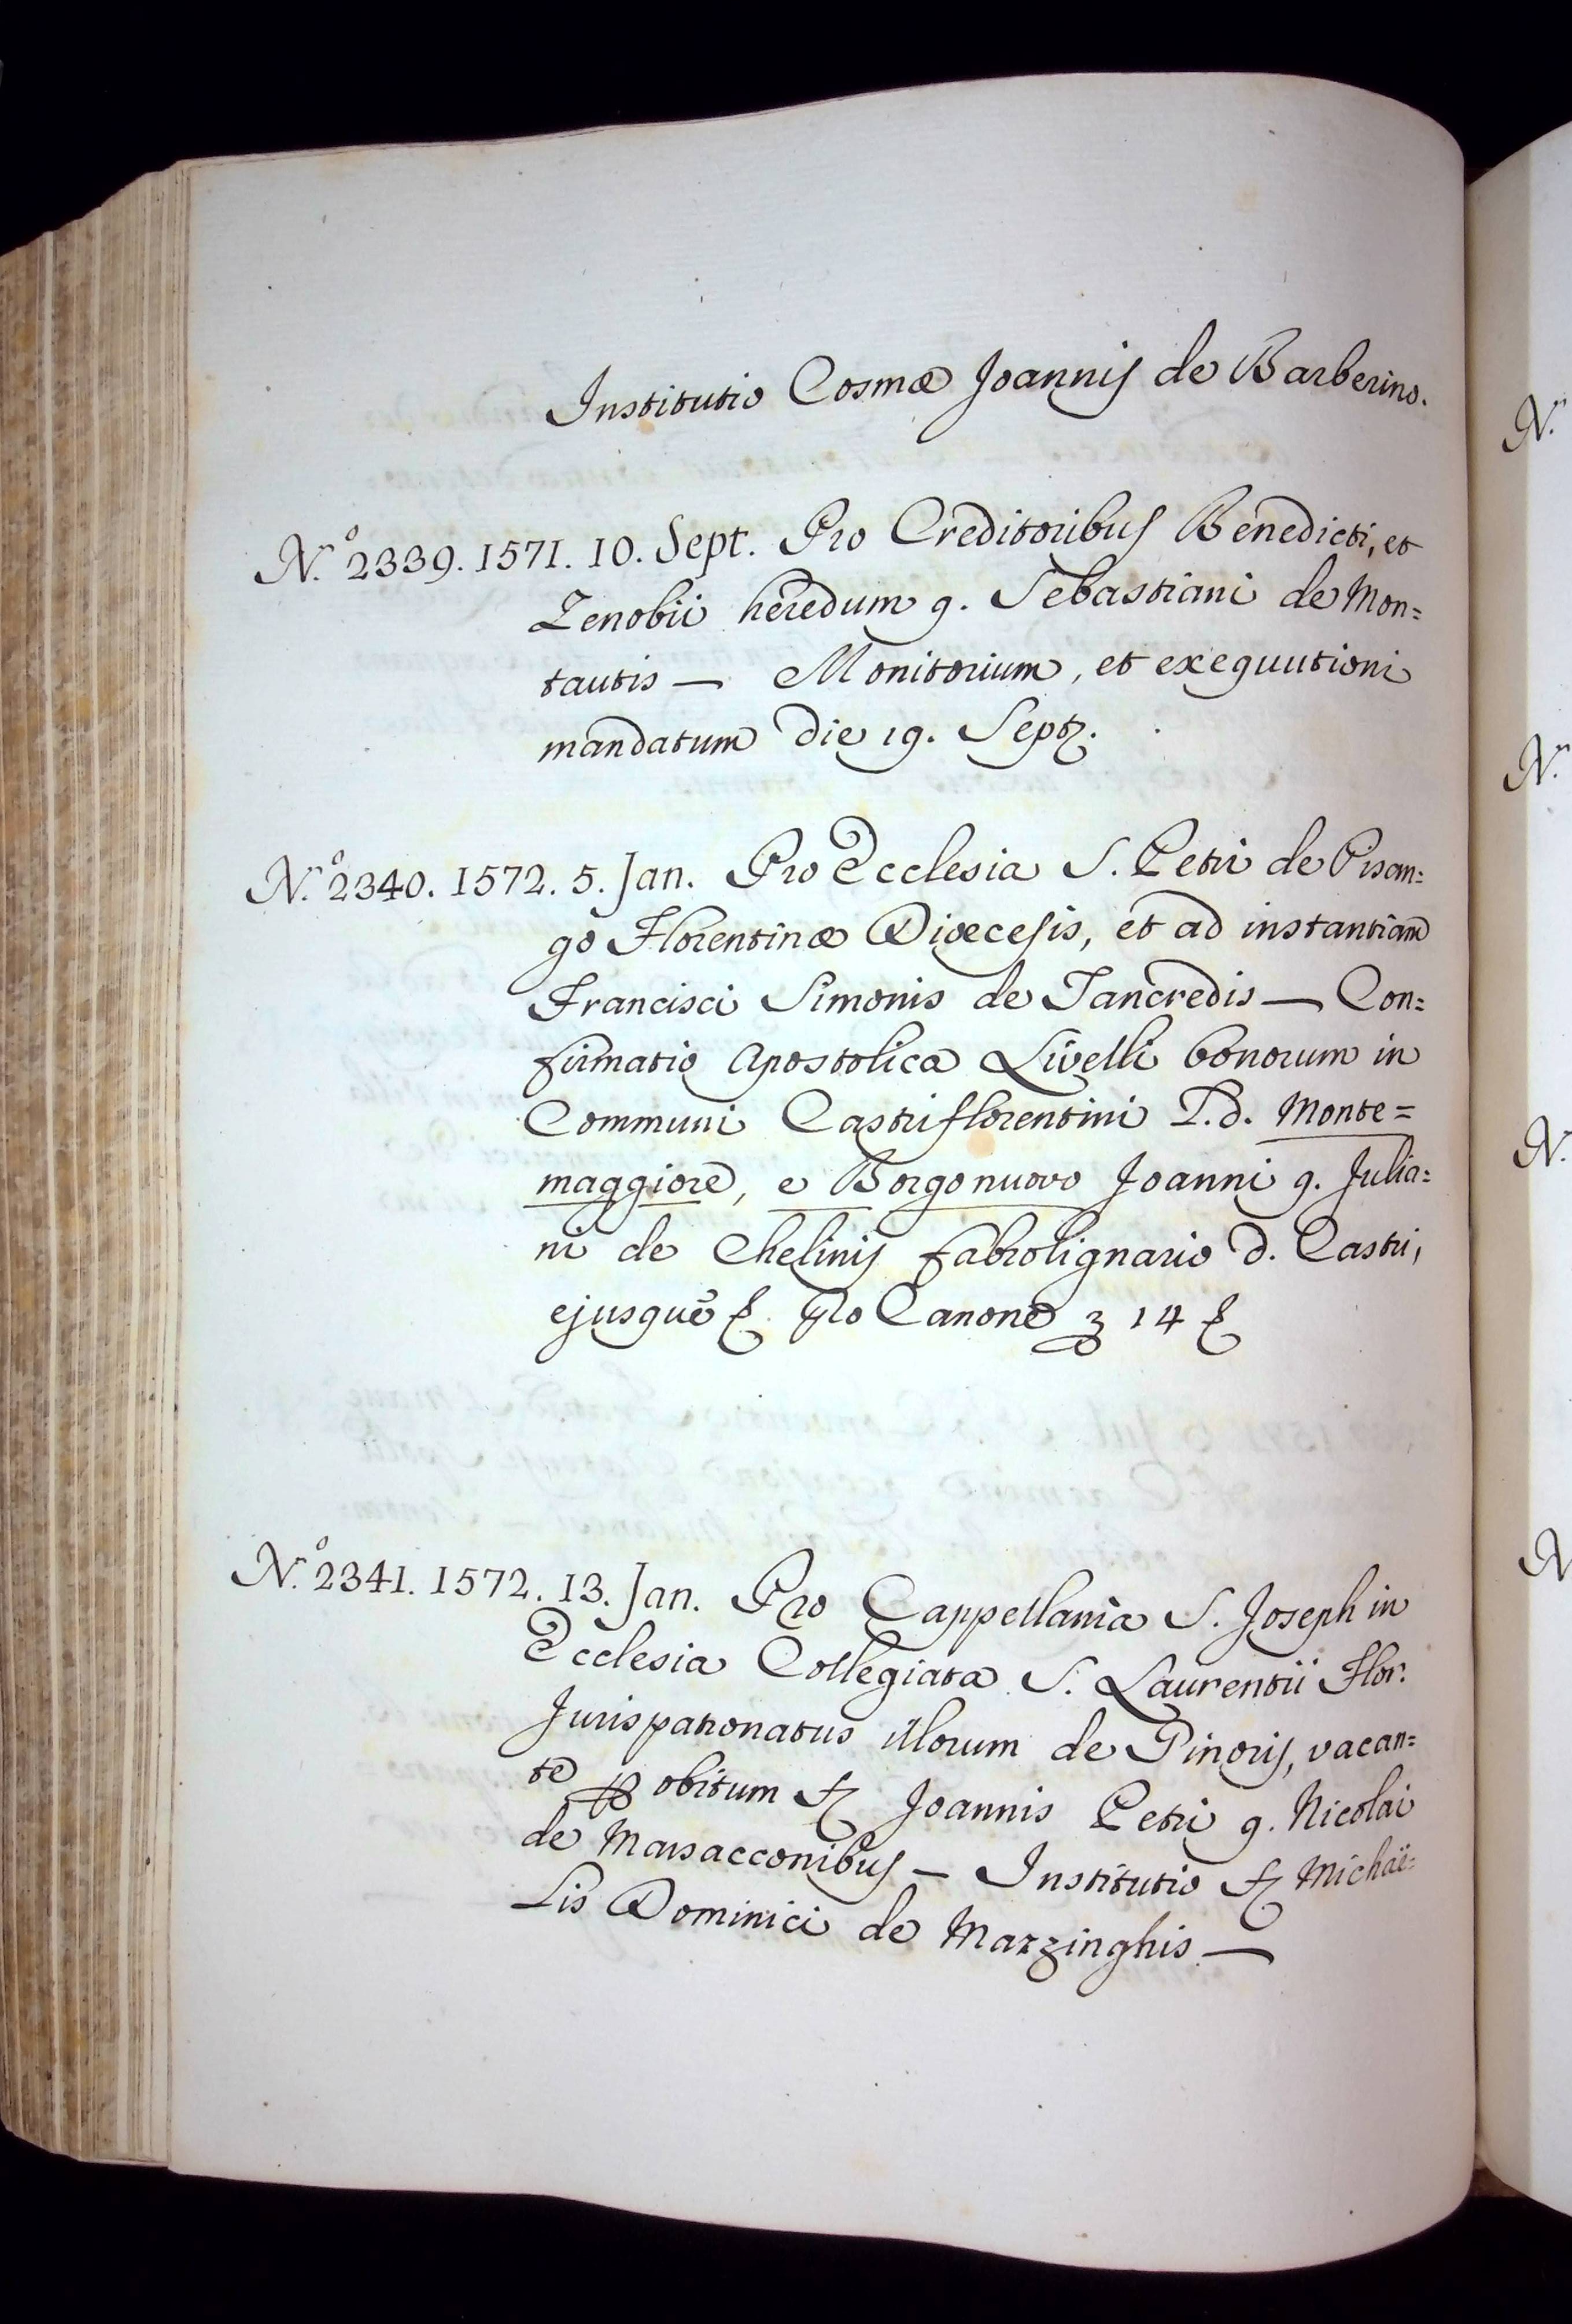 Institutio Cosmæ Joannis de Barberino.
N.º 2339. 1571. 10. Sept. Pro Creditoribus Benedicti, et
Zenobii heredum q. Sebastiani de Mon=
tautis — Monitorium, et exequutioni
mandatum die 19. Sept.
N.º 2340. 1572. 5. Jan. Pro Ecclesia S. Petri de Pisan=
go Florentinæ Diœcesis, et ad instantiam
Francisci Simonis de Tancredis — Con=
firmatio Apostolica Livelli bonorum in
Communi Castriflorentini P.d. Monte=
maggiore, e Borgonuovo Joanni q. Julia=
ni de Chelinis fabrolignario d. Castri,
ejusque pro Canone 14
N.º 2341. 1572. 13. Jan. Pro Cappellania S. Joseph in
Ecclesia Collegiata S. Laurentii Flor.
Jurispatronatus illorum de Pinoris, vacan=
te obitum Joannis Petri q. Nicolai
de Marsacconibus — Institutio Michaë=
lis Dominici de Marzinghis —
N.
N.
N.
N